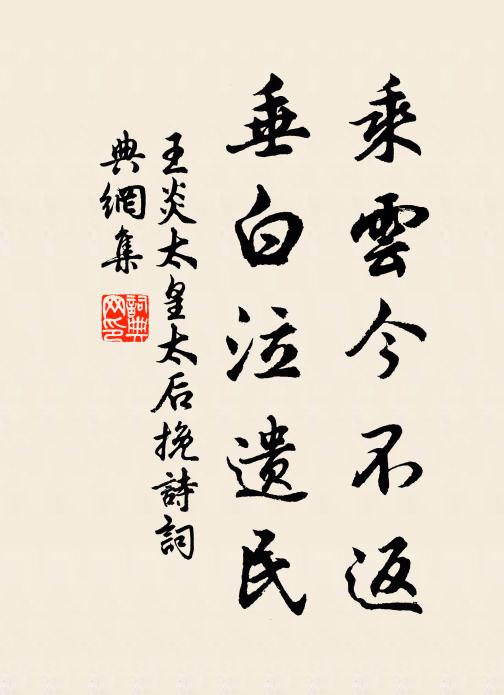 乘雲今不返
垂白泣遺民
王炎太皇太后挽詩詞
典網集
詞典網印